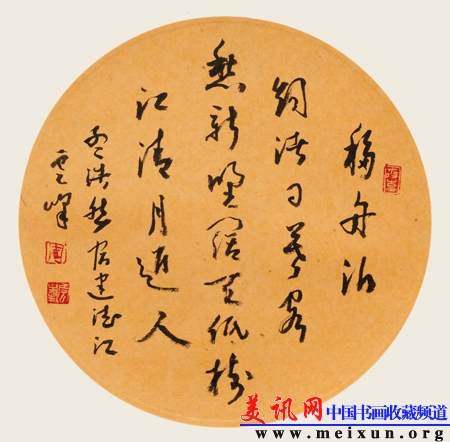 移舟泊
煙渚日暮客
愁新野曠天低樹
江清月近人
孟浩然宿建德江
雲峰
美讯网 中国书画收藏频道
www.meixun.org